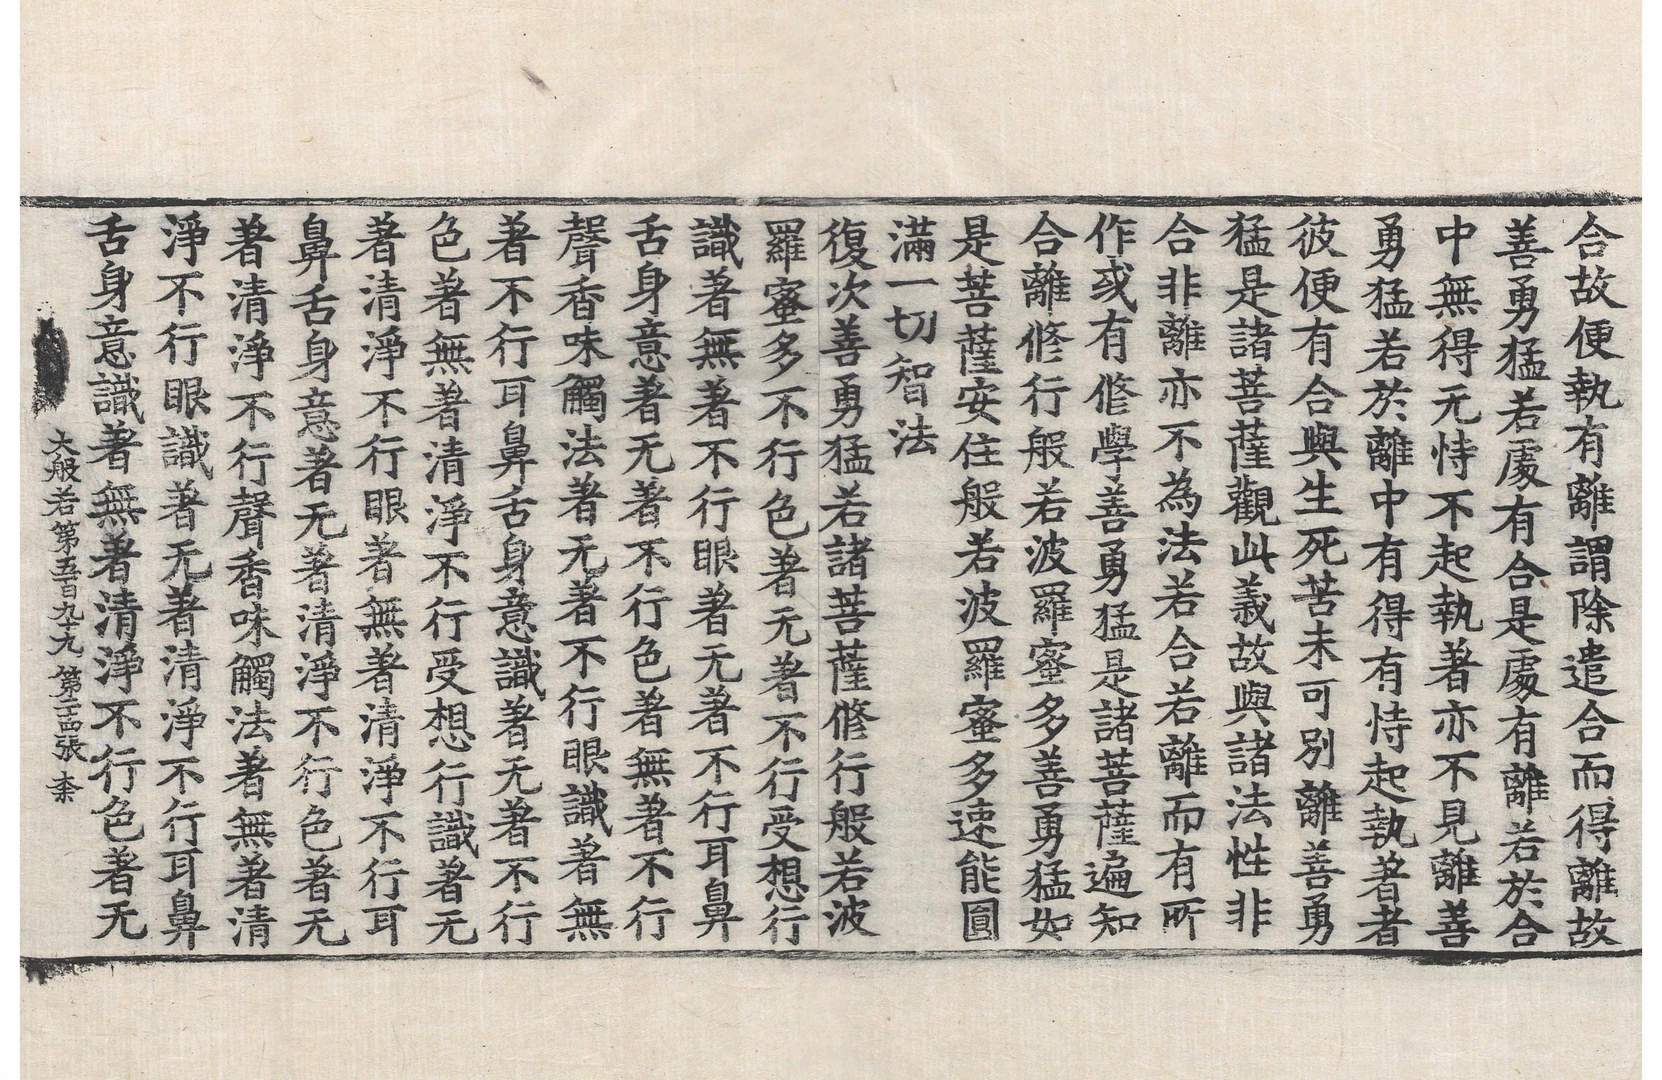 合故便執有離謂除遣合而得離故
善勇猛若處有合是處有離若於合
中無得无恃不起執著亦不見離善
勇猛若於離中有得有恃起執著者
彼便有合與生死苦未可別離善勇
猛是諸菩薩觀此義故與諸法性非
合非離亦不為法若合若離而有所
作或有修學善勇猛是諸菩薩遍知
合離修行般若波羅蜜多善勇猛如
是菩薩安住般若波羅蜜多速能圓
滿一切智法
復次善勇猛若諸菩薩修行般若波
羅蜜多不行色著无著不行受想行
識著無著不行眼著无著不行耳鼻
舌身意著无著不行色著無著不行
聲香味觸法著无著不行眼識著無
著不行耳鼻舌身意識著无著不行
色著無著清淨不行受想行識著无
著清淨不行眼著無著清淨不行耳
鼻舌身意著无著清淨不行色著无
著清淨不行聲香味觸法著無著清
淨不行眼識著无著清淨不行耳鼻
舌身意識著無著清淨不行色著无
大般若第五百九十九 第十四張 柰